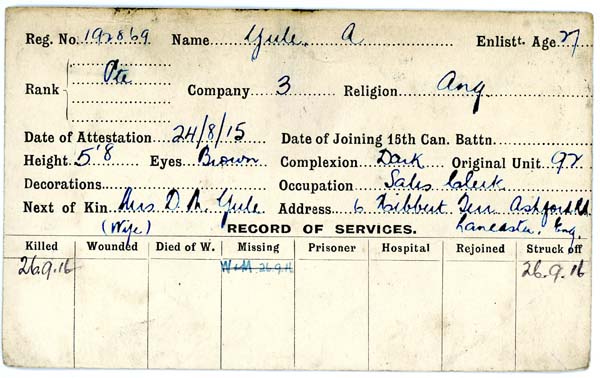 Reg. No. 192869 Name Yule. A Enlistt. Age 27
Rank Pte Company 3 Religion Ang
Date of Attestation 24/8/15 Date of Joining 15th Can. Battn.
Height 5'8 Eyes Brown Complexion Dark Original Unit 92
Decorations Occupation Sales Clerk
Next of Kin Mrs. D. M. Yule Address 6 Hibbert Terr Ashford Rd
(Wife) RECORD OF SERVICES. Lancaster, Eng.
Killed Wounded Died of W. Missing Prisoner Hospital Rejoined Struck off
26.9.16 W&M 26.9.16 26.9.16